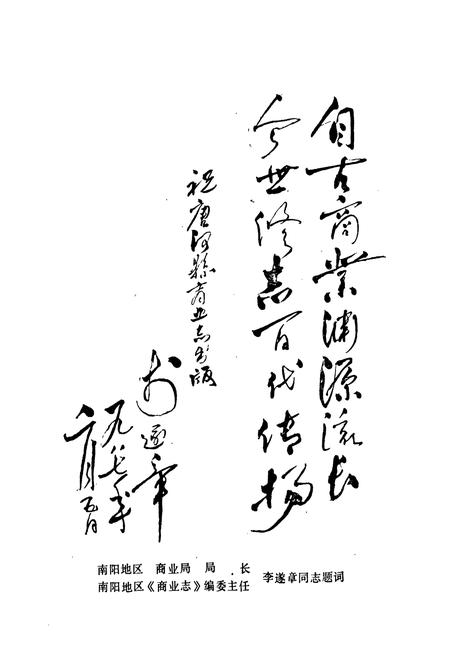 自古商业渊源流长
今世修志百代传扬
祝唐河县商业志出版
李遂章
一九八七年
二月五日
南阳地区 商业局 局 长
南阳地区《商业志》编委主任 李遂章同志题词